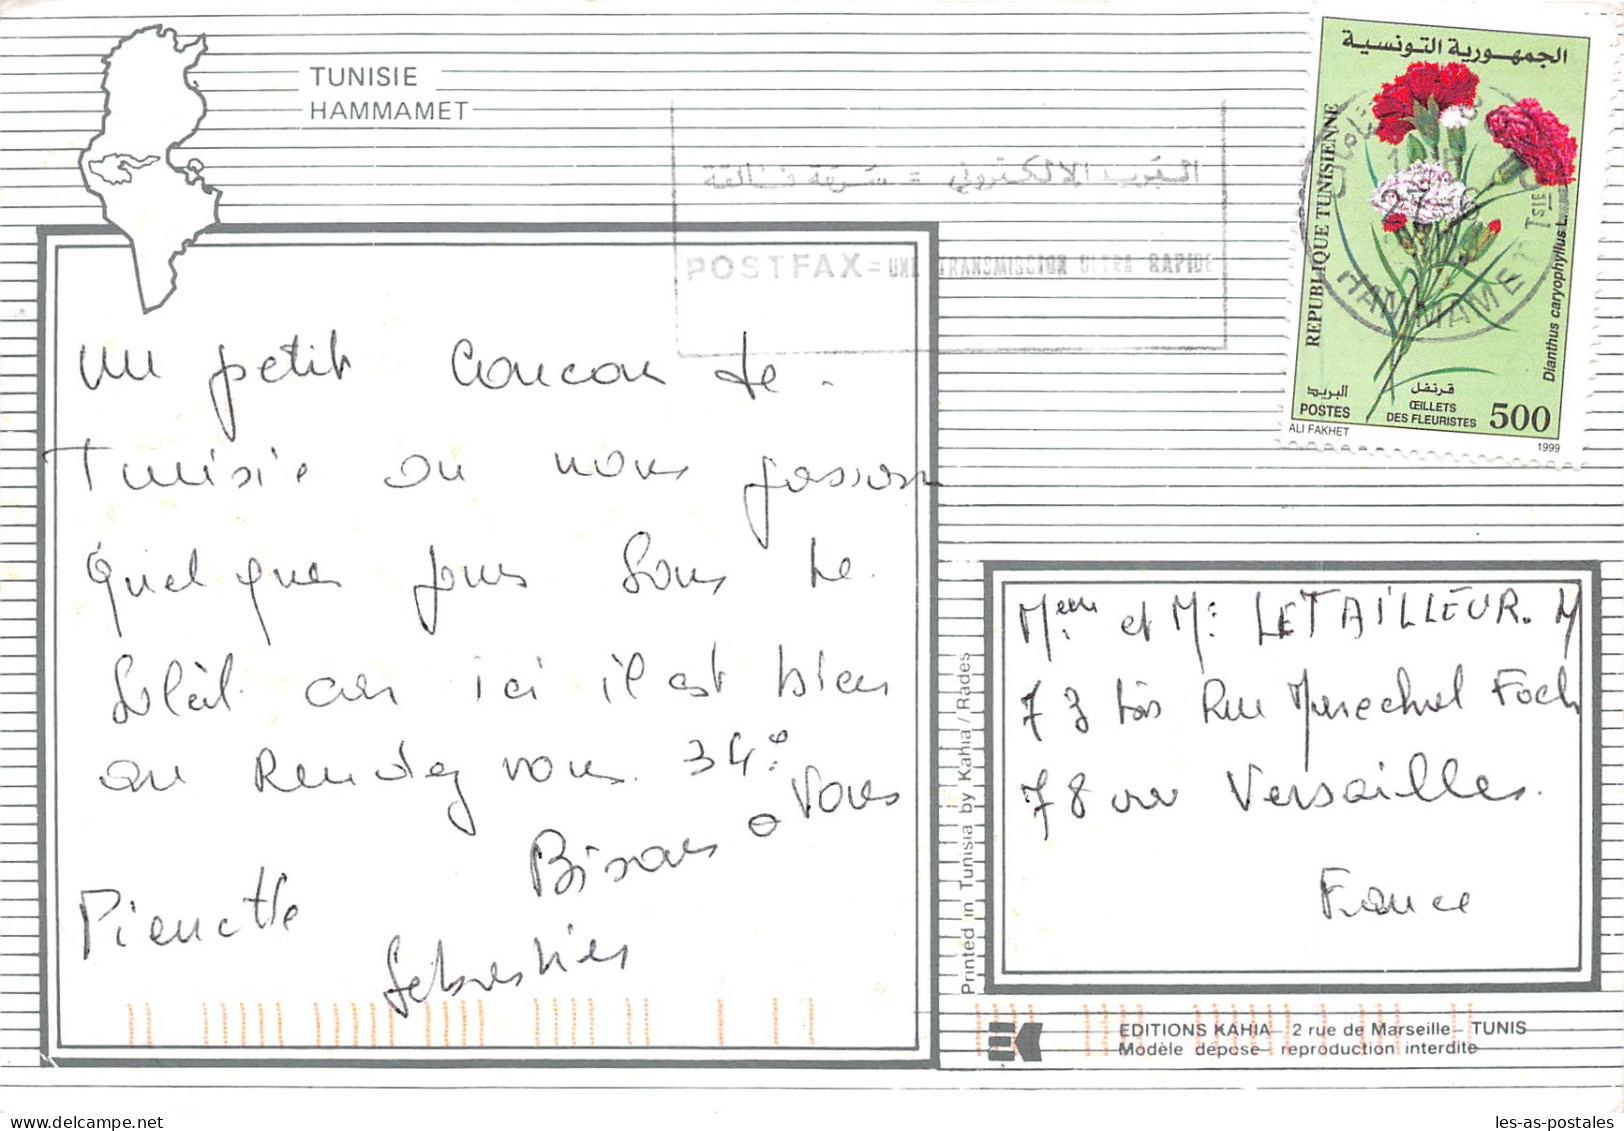 TUNISIE
HAMMAMET
البريد الالكتروني = سرعة فائقة
POSTFAX = UNE TRANSMISSION ULTRA RAPIDE
الجمهورية التونسية
REPUBLIQUE TUNISIENNE
Dianthus caryophyllus L.
HAMMAMET
البريد
POSTES
قرنفل
ŒILLETS
DES FLEURISTES
500
ALI FAKHET
1999
Un petit Coucou de
Tunisie ou nous passons
quelques jours sous le
Soleil car ici il est bien
au Rendez vous. 34°
Bisous a Vous
Pierrette
Sebastien
Printed in Tunisia by Kahia / Rades
Meme et Mr LETAILLEUR. M
73 bis Rue Marechal Foch
78000 Versailles.
France
EDITIONS KAHIA 2 rue de Marseille - TUNIS
Modèle déposé reproduction interdite
les-as-postales